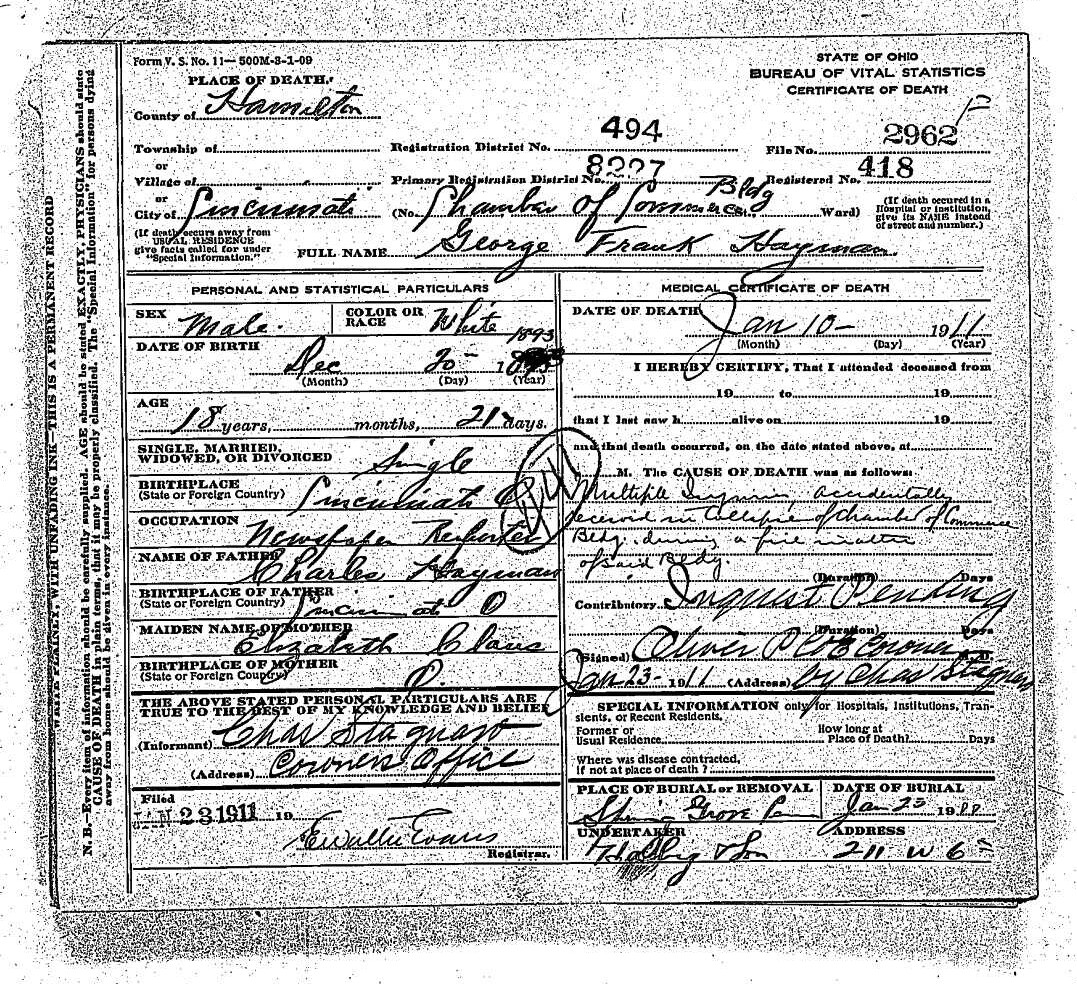 Form V. S. No. 11— 500M-3-1-09
PLACE OF DEATH.
STATE OF OHIO
BUREAU OF VITAL STATISTICS
CERTIFICATE OF DEATH
County of Hamilton
Township of
Registration District No. 494
File No. 2962
or
Village of
Primary Registration District No. 8227
Registered No. 418
or
City of Cincinnati
(No. Chamber of Commerce Bldg St., Ward)
(If death occured in a Hospital or institution, give its NAME instead of street and number.)
(If death occurs away from USUAL RESIDENCE give facts called for under "Special Information.")
FULL NAME George Frank Hayman
PERSONAL AND STATISTICAL PARTICULARS
SEX Male.
COLOR OR RACE White
DATE OF BIRTH
1893
Dec 20- 18
(Month) (Day) (Year)
AGE
18 years, months, 21 days.
SINGLE, MARRIED, WIDOWED, OR DIVORCED Single
BIRTHPLACE
(State or Foreign Country) Cincinnati O
OCCUPATION
Newspaper Reporter
NAME OF FATHER
Charles Hayman
BIRTHPLACE OF FATHER
(State or Foreign Country) Cincinnati O
MAIDEN NAME OF MOTHER
Elizabeth Claus
BIRTHPLACE OF MOTHER
(State or Foreign Country) O.
THE ABOVE STATED PERSONAL PARTICULARS ARE
TRUE TO THE BEST OF MY KNOWLEDGE AND BELIEF
(Informant) Chas Stagnaro
(Address) Coroners Office
Filed
JAN 23 1911 19
Evans
Registrar.
MEDICAL CERTIFICATE OF DEATH
DATE OF DEATH
Jan 10- 1911
(Month) (Day) (Year)
I HEREBY CERTIFY, That I attended deceased from
19 to 19
that I last saw h alive on 19
and that death occurred, on the date stated above, at
M. The CAUSE OF DEATH was as follows:
Multiple Injuries accidentally
received in Collapse of Chamber of Commerce
Bldg. during a fire
of said Bldg.
(Duration) Days
Contributory Inquest Pending
(Duration) Days
(Signed) Oliver P Coe Coroner M.D.
Jan 23- 1911 (Address) by Chas Stagnaro
SPECIAL INFORMATION only for Hospitals, Institutions, Transients, or Recent Residents.
Former or Usual Residence
How long at Place of Death? Days
Where was disease contracted,
If not at place of death ?
PLACE OF BURIAL or REMOVAL
DATE OF BURIAL
Grove
Jan 23 19
UNDERTAKER
ADDRESS
& Son
211 W 6
N. B.—Every item of information should be carefully supplied. AGE should be stated EXACTLY, PHYSICIANS should state
CAUSE OF DEATH in plain terms, that it may be properly classified. The "Special Information" for persons dying
away from home should be given in every instance.
WRITE PLAINLY, WITH UNFADING INK—THIS IS A PERMANENT RECORD